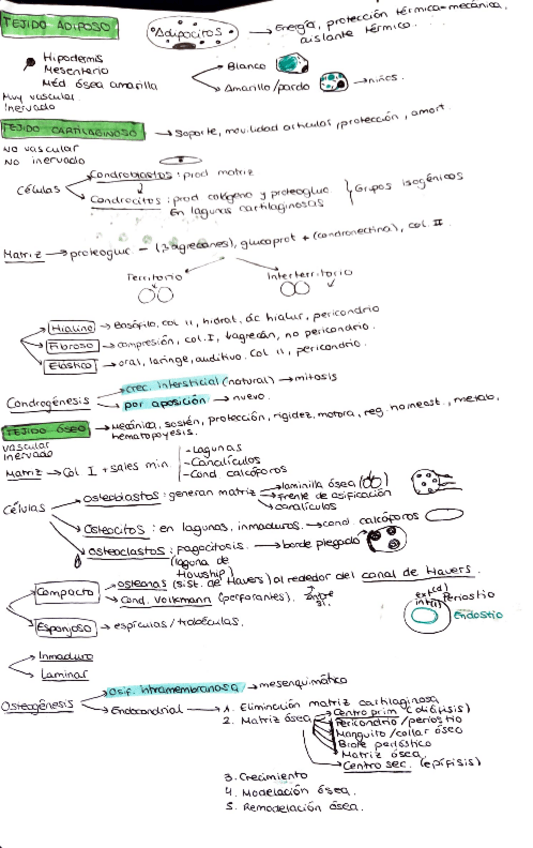 TEJIDO ADIPOSO
Adipocitos → Energía, protección térmica-mecánica,
aislante térmico.
Hipodermis
Mesenterio
Méd ósea amarilla
Blanco
Amarillo/pardo → niños.
Muy vascular
Inervado
TEJIDO CARTILAGINOSO → Soporte, movilidad articulas, protección, amort.
No vascular
No inervado
Células
Condroblastos: prod matriz
Condrocitos: prod colágeno y proteogluc
En lagunas cartilaginosas
Grupos isogénicos
Matriz → proteogluc - (agrecanes), glucoprot + (condronectina), col. II
Territorio
Interterritorio
Hialino → Basófilo, col II, hidrat, ác hialur, pericondrio
Fibroso → compresión, col. I, agrecán, no pericondrio.
Elástico → oral, laringe, auditivo. Col II, pericondrio.
Condrogénesis
crec. intersticial (natural) → mitosis
por aposición → nuevo.
TEJIDO ÓSEO → Mecánica, sostén, protección, rigidez, motora, reg. homeost., metab,
hematopoyesis.
vascular
Inervado
Matriz → Col I + sales min
-Lagunas
-Canalículos
-Cond calcóforos
Células
Osteoblastos: generan matriz
laminilla ósea
frente de osificación
canalículos
Osteocitos: en lagunas, inmaduros. → cond. calcóforos
osteoclastos: fagocitosis. → borde plegado
(laguna de
Howship)
Compacto
osteonas (sist. de Havers) al rededor del canal de Havers.
Cond. Volkmann (perforantes). Entre
sí.
Esponjoso → espículas/trabéculas.
ext(cd) Periostio
int(s) Endostio
Inmaduro
Laminar
Osteogénesis
Osif. intramembranosa → mesenquimático
Endocondrial → 1. Eliminación matriz cartilaginosa
2. Matriz ósea
Centro prim (diáfisis)
Pericondrio/periostio
Manguito/collar óseo
Brote perióstico
Matriz ósea
Centro sec. (epífisis)
3. Crecimiento
4. Modelación ósea.
5. Remodelación ósea.